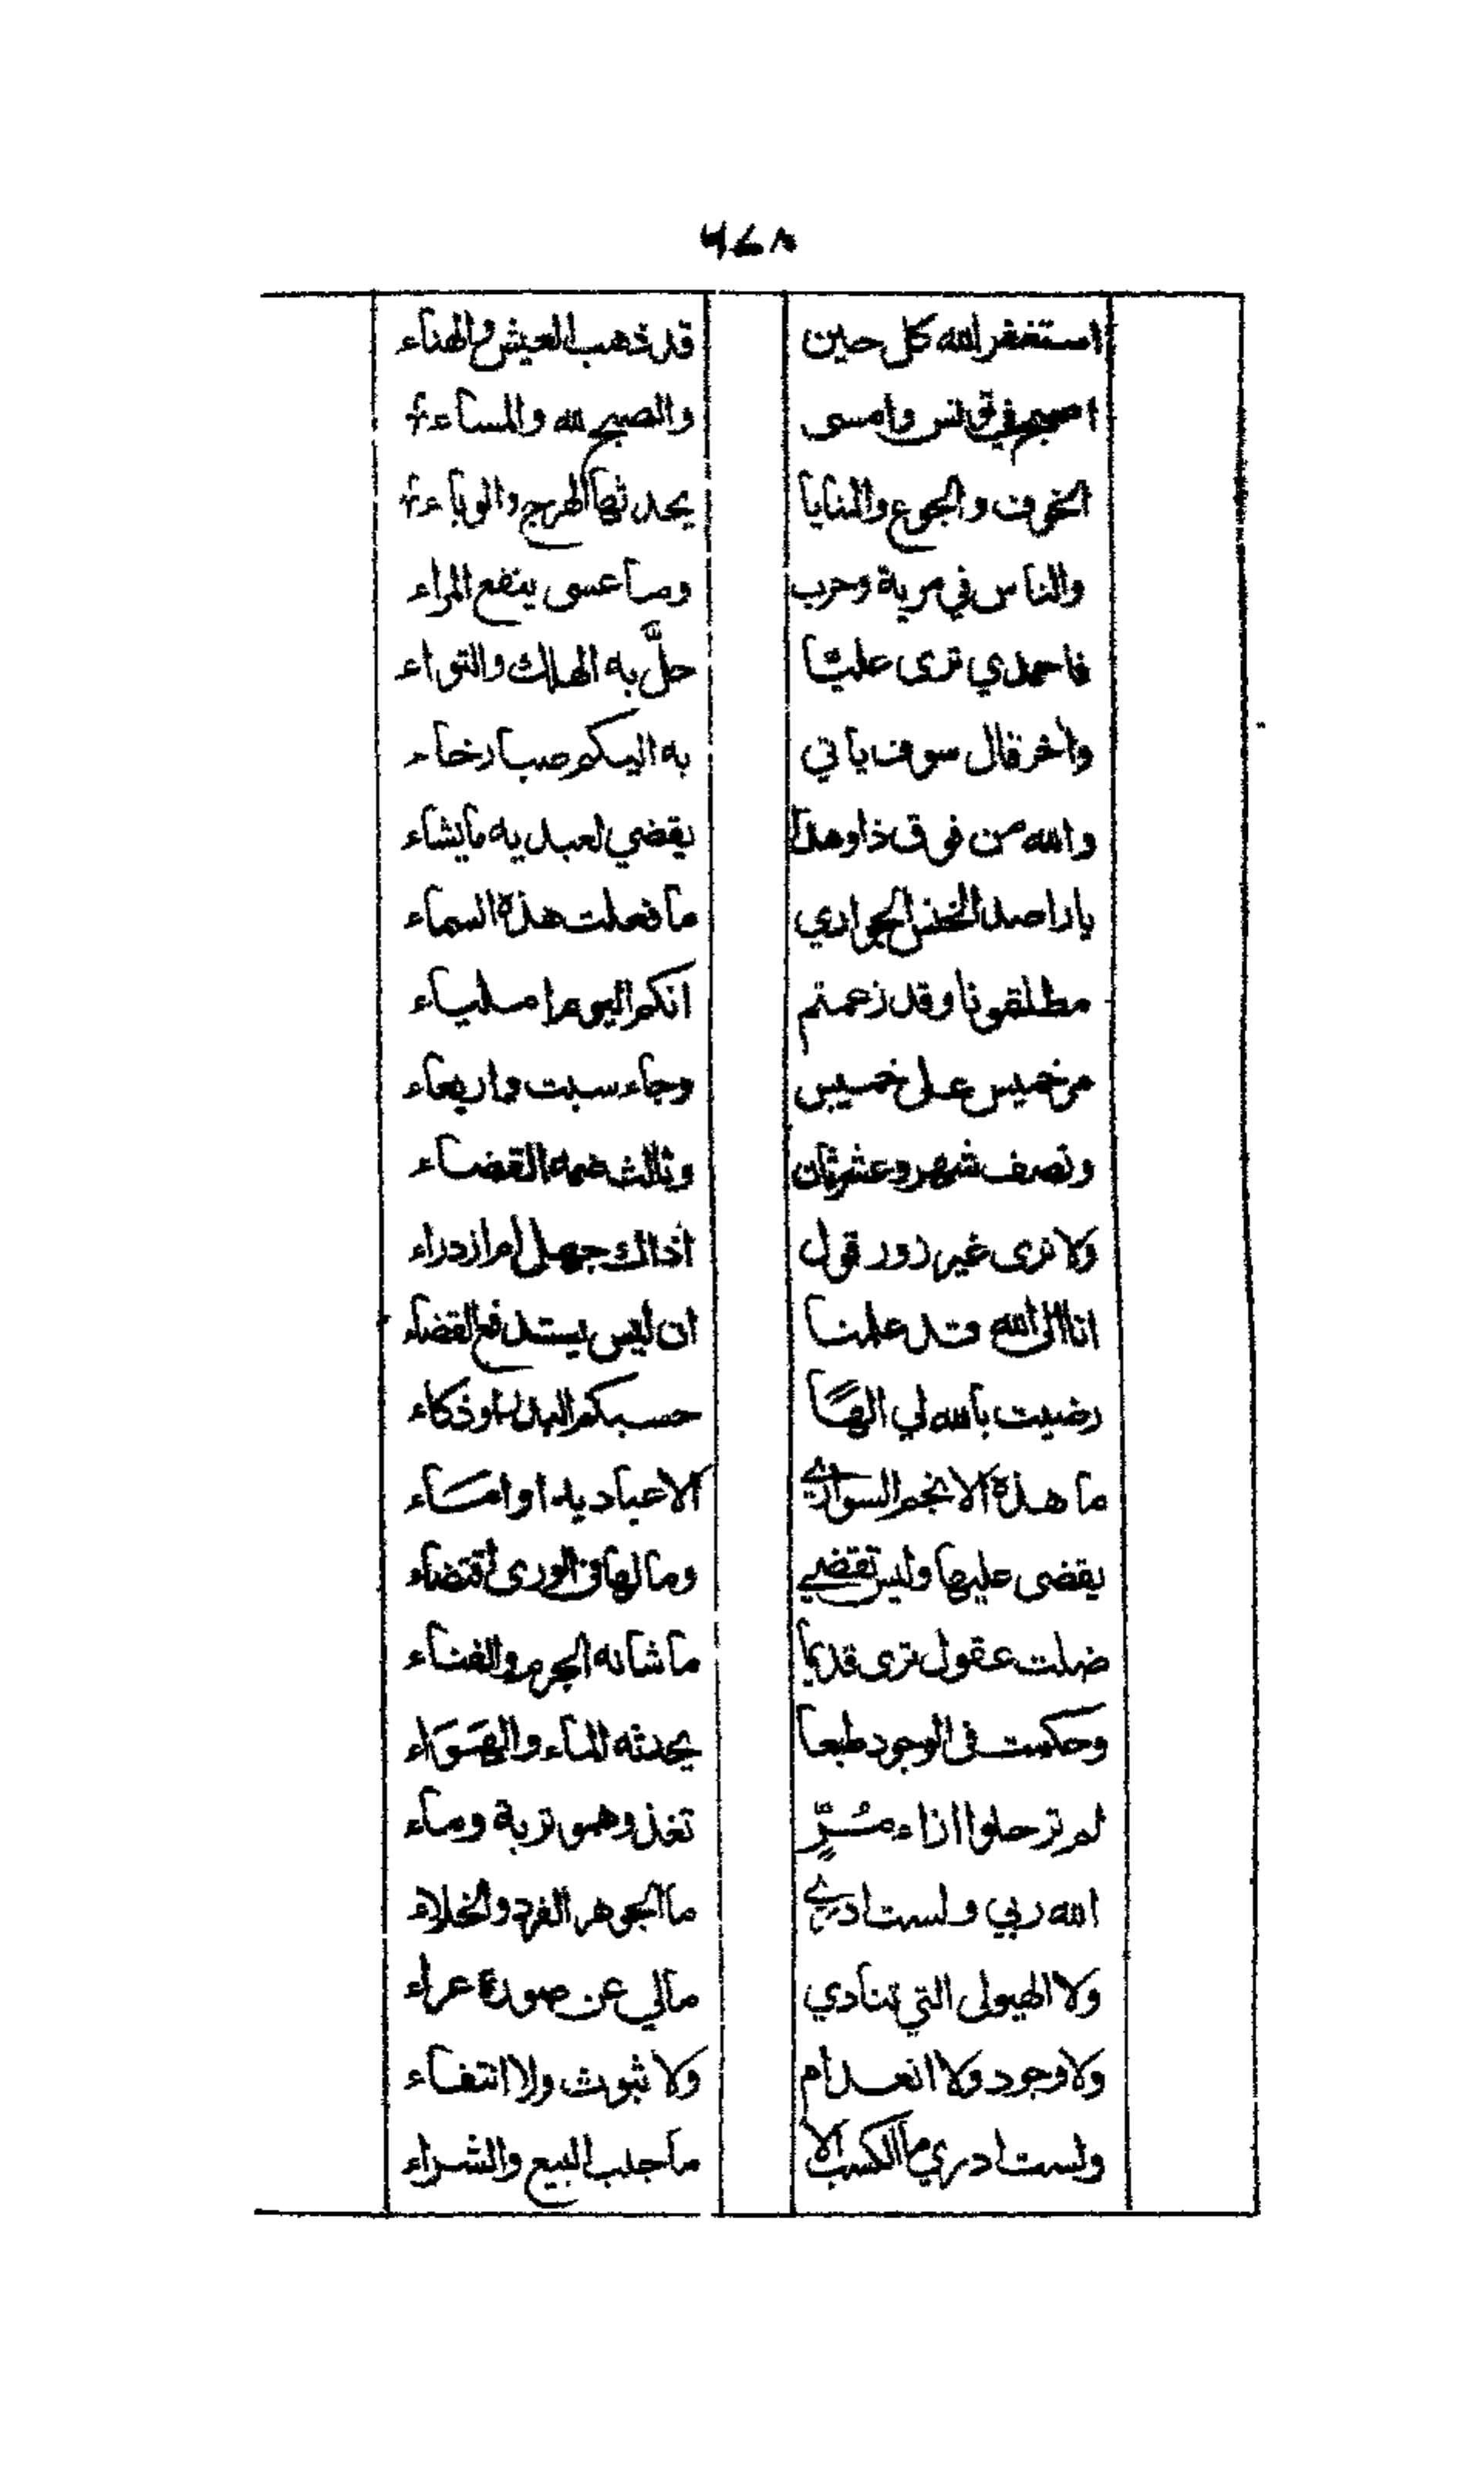 ٩٤٨
استغفر الله كل حين قد ذهب العيش والهناء
اصبح في تونس وامسى والصبح لله والمساء
الخوف والجوع والمنايا يحدثها الهرج والوباء
والناس في مرية وحرب وما عسى ينفع المراء
فاحمدي ترى عليا حلَّ به الهلك والتواء
واخر قال سوف ياتي به اليكم صبا رخاء
والله من فوق ذا وهذا يقضي لعبديه ما يشاء
يا راصد الخنس الجواري ما فعلت هذه السماء
مطلقونا وقد زعمتم انكم اليوم املياء
مر خميس على خميس وجاء سبت واربعاء
ونصف شهر وعشر ثان وثالث ضمه القضاء
ولا نرى غير زور قول اذاك جهل ام ازدراء
انا الى الله قد علمنا ان ليس يستدفع القضاء
رضيت بالله لي الهًا حسبكم البدر او ذكاء
ما هذه الانجم السواري الا عباديد او امساء
يقضى عليها وليس تقضي وما لها في الورى اقتضاء
ضلت عقول ترى قديما ما شانه الجرم والفناء
وحكمت في الوجود طبعا يحدثه الماء والهواء
لم تر حلوا ازاء مُرٍّ تغذوهمو تربة وماء
الله ربي ولست ادري ما الجوهر الفرد والخلاء
ولا الهيولى التي تنادي مالي عن صورة عراء
ولا وجود ولا انعدام ولا ثبوت ولا انتفاء
ولست ادري ما الكسب الا ما جلب البيع والشراء